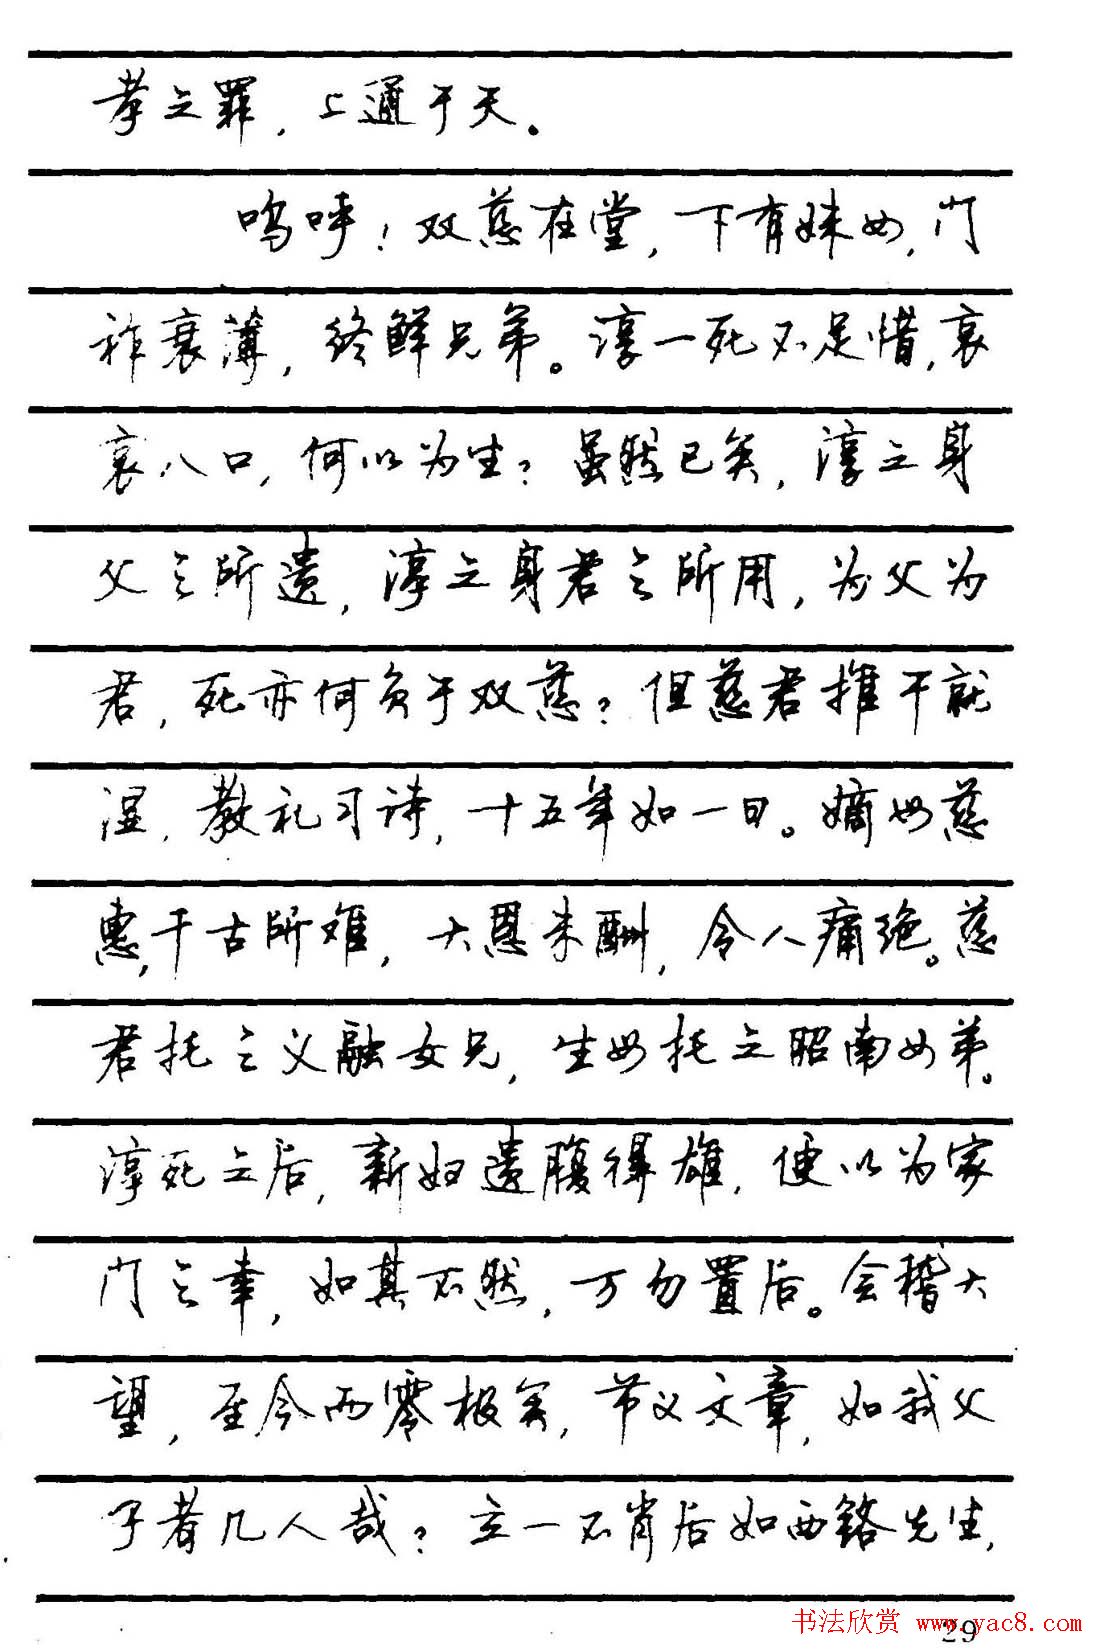 孝之罪，上通于天。
呜呼！双慈在堂，下有妹女，门
祚衰薄，终鲜兄弟。淳一死不足惜，哀
哀八口，何以为生？虽然已矣，淳之身
父之所遗，淳之身君之所用，为父为
君，死亦何负于双慈？但慈君推干就
湿，教礼习诗，十五年如一日。嫡母慈
惠，千古所难，大恩未酬，令人痛绝。慈
君托之义融女兄，生母托之昭南女弟。
淳死之后，新妇遗腹得雄，便以为家
门之幸，如其不然，万勿置后。会稽大
望，至今而零极矣，节义文章，如我父
子者几人哉？立一不肖后如西铭先生，
书法欣赏 www.yac8.com
29